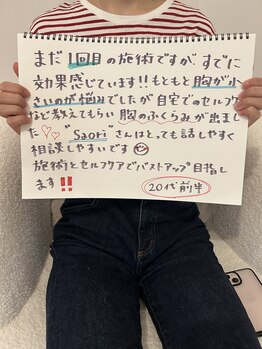 まだ1回目の施術ですが、すでに
効果感じています!!もともと胸が小
さいのが悩みでしたが自宅でのセルフケア
など教えてもらい胸のふくらみが出まし
た♡♡ "Saori"さんはとっても話しやすく
相談しやすいです
施術とセルフケアでバストアップ目指し
ます!!
20代前半